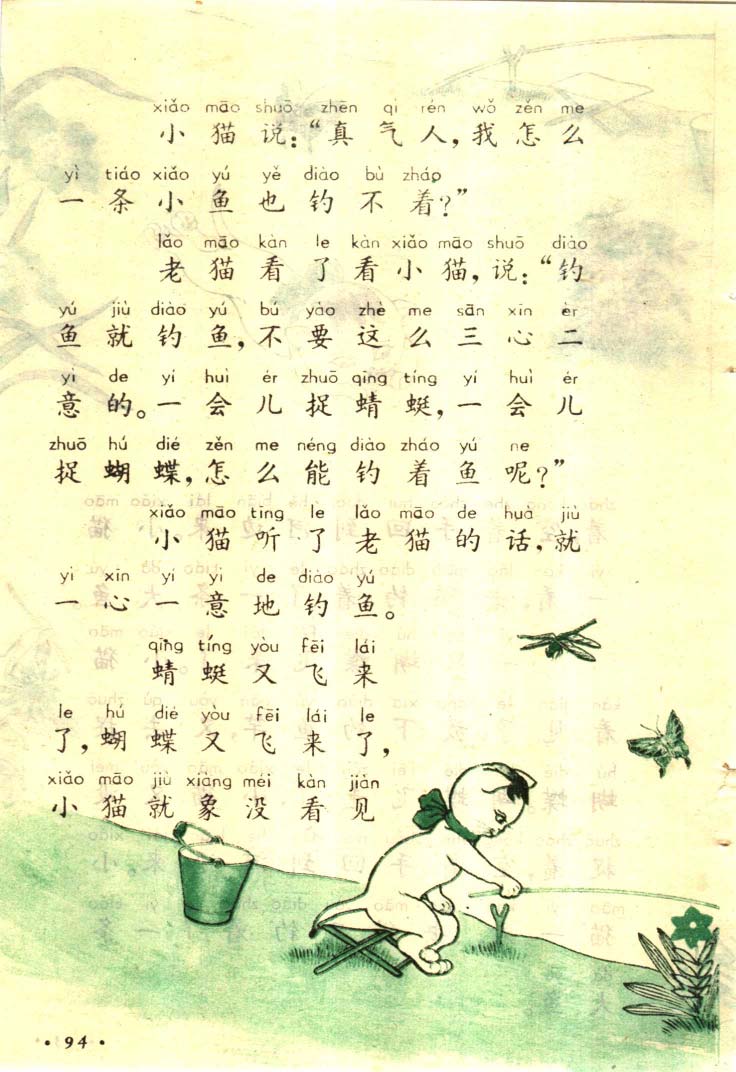 xiǎo māo shuō zhēn qì rén wǒ zěn me
小猫说：“真气人，我怎么
yì tiáo xiǎo yú yě diào bù zháo
一条小鱼也钓不着？”
lǎo māo kàn le kàn xiǎo māo shuō diào
老猫看了看小猫，说：“钓
yú jiù diào yú bú yào zhè me sān xīn èr
鱼就钓鱼，不要这么三心二
yì de yí huì ér zhuō qīng tíng yí huì ér
意的。一会儿捉蜻蜓，一会儿
zhuō hú dié zěn me néng diào zháo yú ne
捉蝴蝶，怎么能钓着鱼呢？”
xiǎo māo tīng le lǎo māo de huà jiù
小猫听了老猫的话，就
yì xīn yí yì de diào yú
一心一意地钓鱼。
qīng tíng yòu fēi lái
蜻蜓又飞来
le hú dié yòu fēi lái le
了，蝴蝶又飞来了，
xiǎo māo jiù xiàng méi kàn jiàn
小猫就象没看见
• 94 •